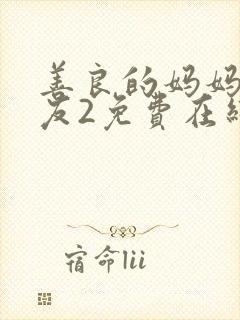 善良的妈妈
友2免費在線
宿命lii